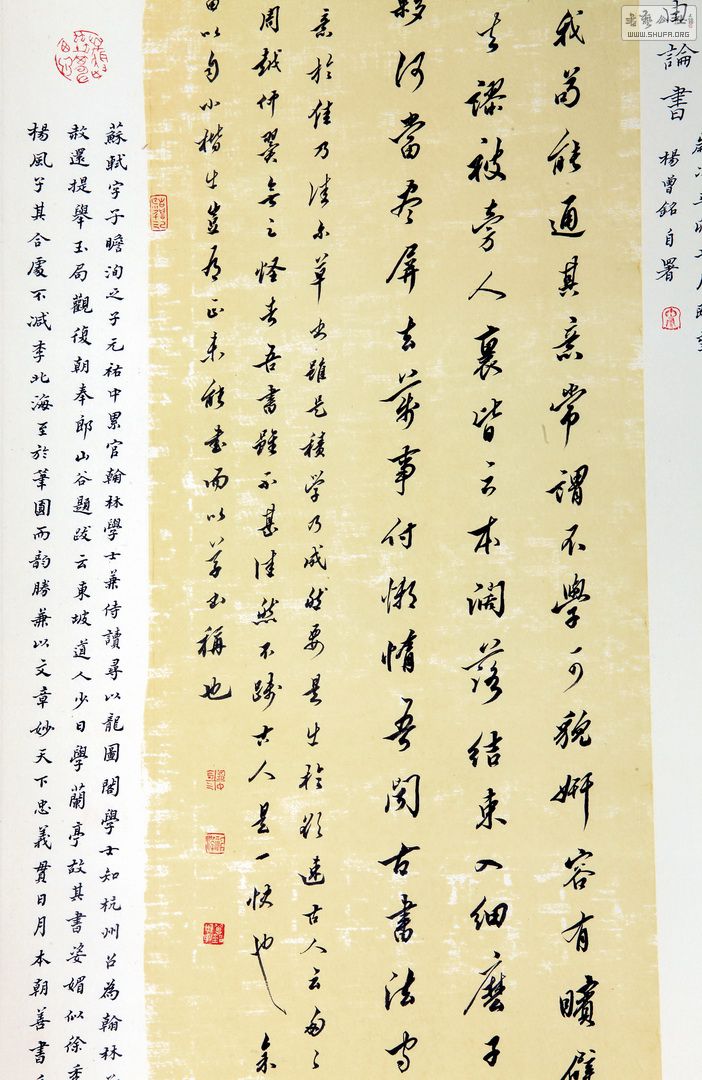 WWW.SHUFA.ORG
由論書
楊曾銘自署
我苟能通其意常謂不學可貌妍容有矉璧
去謬被旁人裹皆云本闊落結束入細麽子
夥何當盡屏去萬事付懶惰吾聞古書法守
意於佳乃佳尔草書雖是積學乃成然要是出於欲速古人云匆匆
周越仲翼無足怪者吾書雖不甚佳然不踐古人是一快也余
以自小楷出豈有正未能書而以草書稱也
蘇軾字子瞻洵之子元祐中累官翰林學士兼侍讀尋以龍圖閣學士知杭州召為翰林
赦還提舉玉局觀復朝奉郎山谷題跋云東坡道人少日學蘭亭故其書姿媚似徐季
楊風子其合處不減李北海至於筆圓而韵勝兼以文章妙天下忠義貫日月本朝善書